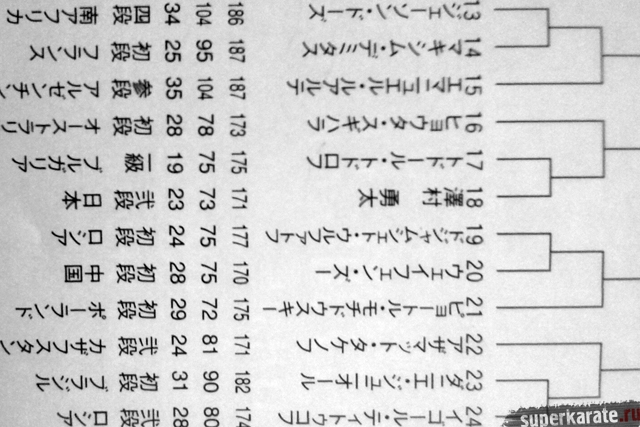 13 ジェーソン・ドーズ 186 104 34 四段 南アフリカ
14 マキシム・デミタス 187 95 25 初段 フランス
15 エマニュエル・ルアルテ 187 104 35 参段 アルゼンチン
16 ヒョウタ・スギハラ 173 78 28 初段 オーストラリ
17 トドール・トドロフ 175 75 19 一級 ブルガリア
18 澤村 勇太 171 73 23 弐段 日本
19 ドジャムシェト・ウルファトフ 177 75 24 初段 ロシア
20 ウェイフェン・ズー 170 75 28 初段 中国
21 ピョートル・モチドウスキー 175 72 29 初段 ポーランド
22 アザマット・タケノフ 171 81 24 弐段 カザフスタン
23 ダニエ・ジュニオール 182 90 31 初段 ブラジル
24 イゴール・ティトウコフ 174 80 28 弐段 ロシア
superkarate.ru